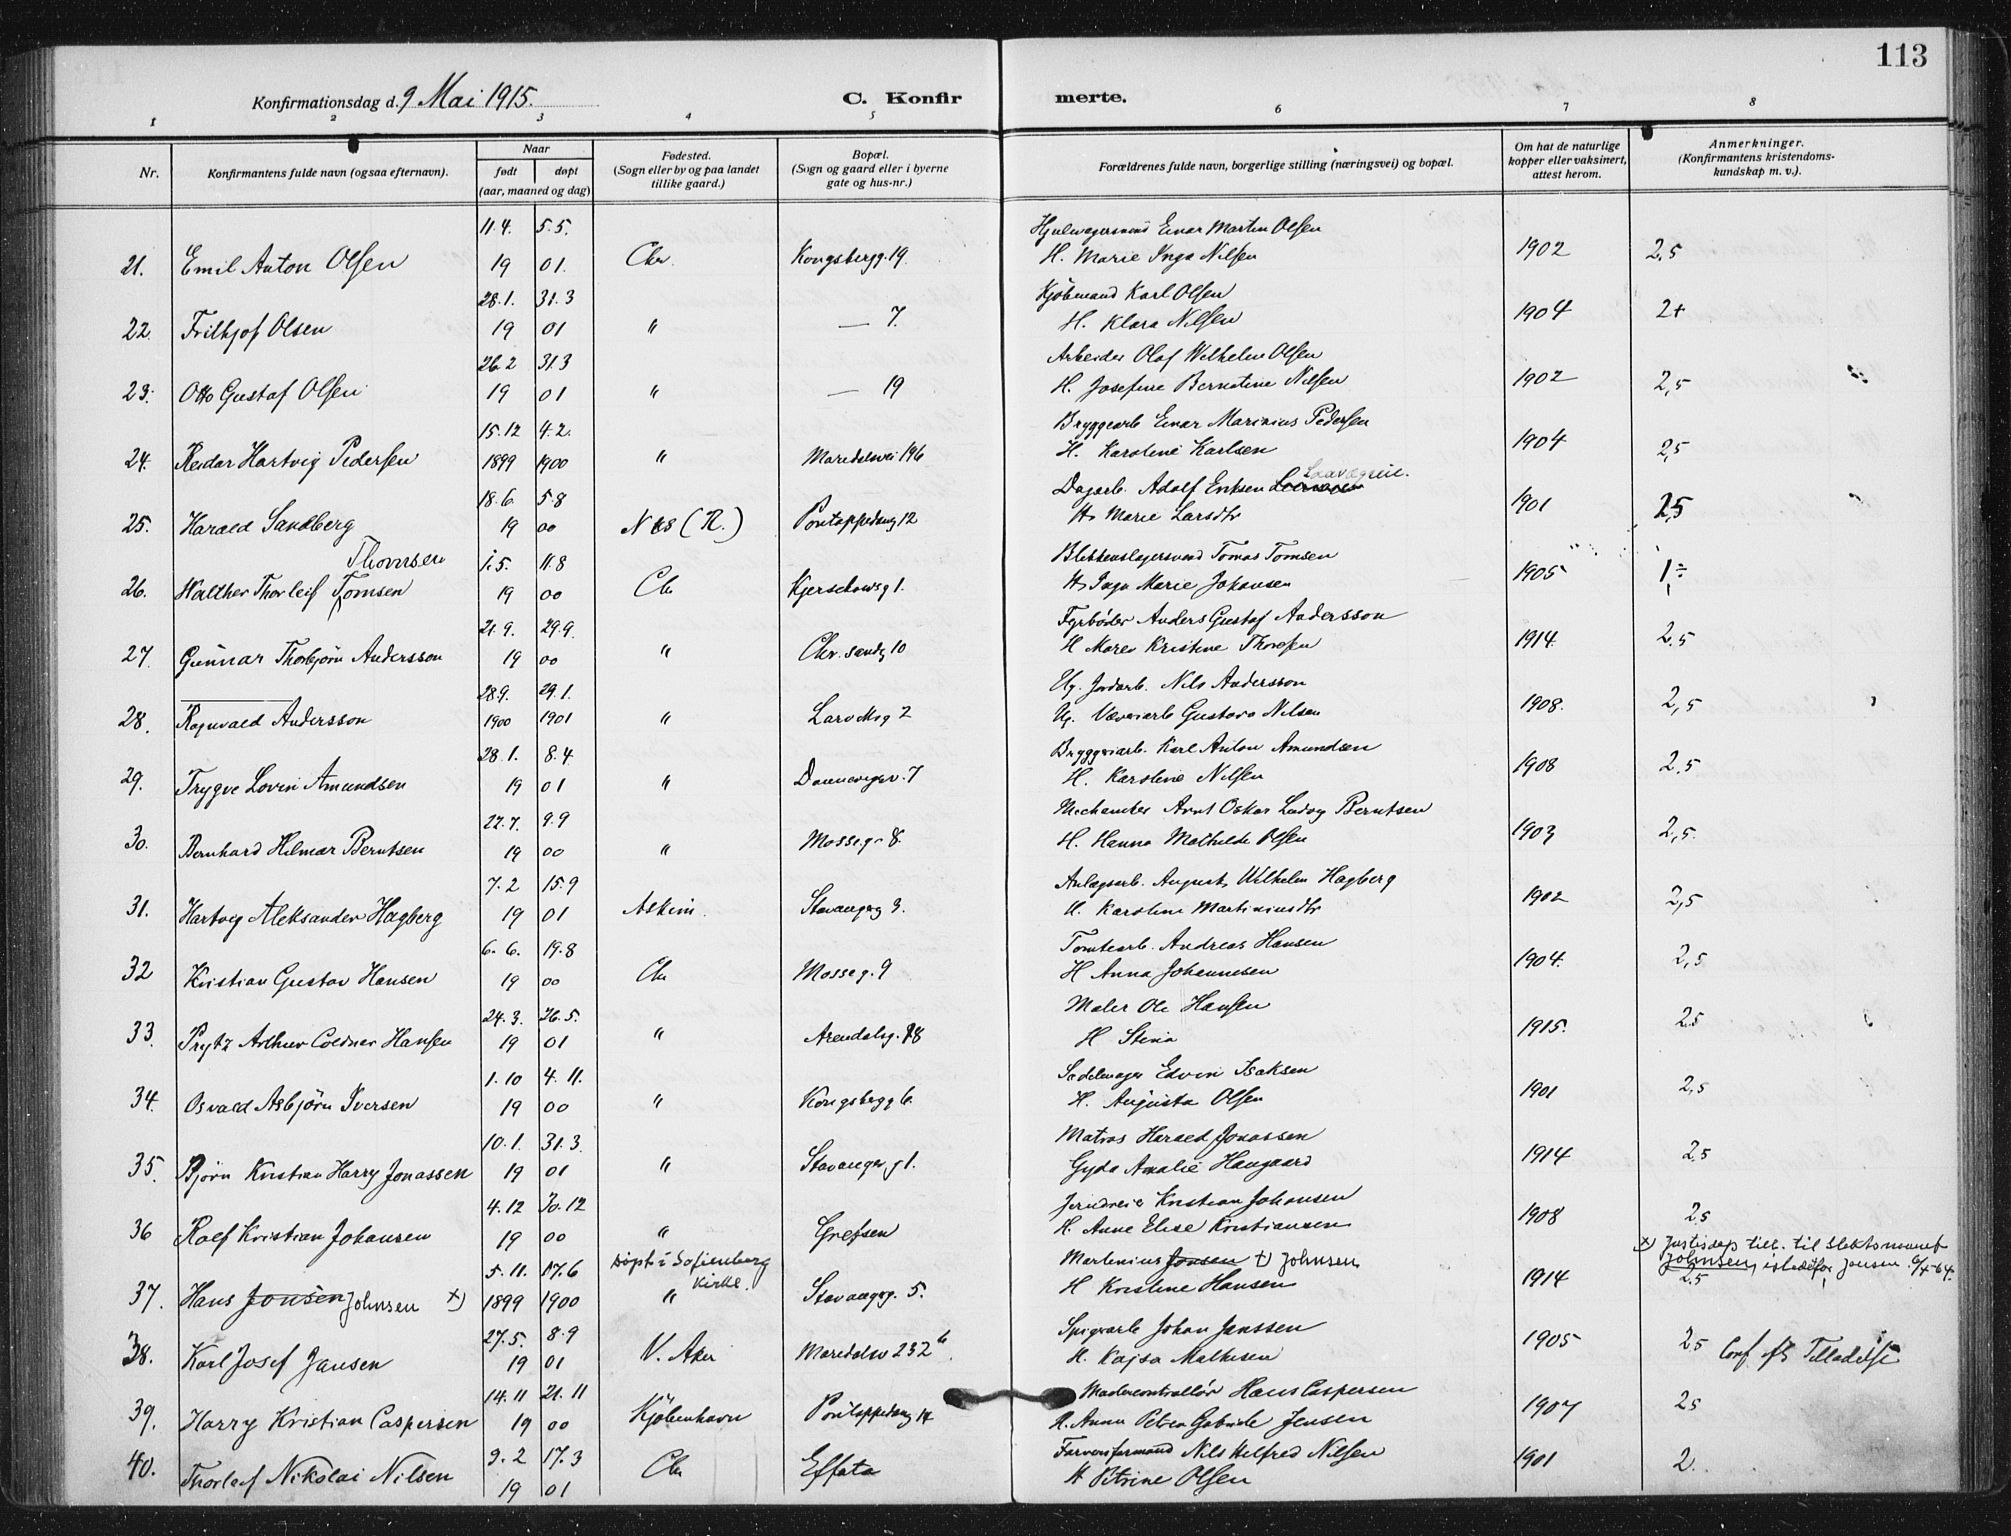 113
Konfirmationsdag d. 9 Mai 1915.
C. Konfirmerte.
1 2 3 4 5 6 7 8
Nr.
Konfirmantens fulde navn (ogsaa efternavn).
Naar
født døpt
(aar, maaned og dag)
Fødested.
(Sogn eller by og paa landet
tillike gaard.)
Bopæl.
(Sogn og gaard eller i byerne
gate og hus-nr.)
Forældrenes fulde navn, borgerlige stilling (næringsvei) og bopæl.
Om hat de naturlige
kopper eller vaksinert,
attest herom.
Anmerkninger.
(Konfirmantens kristendoms-
kundskap m. v.).
11.4. 5.5. Einar Martin Olsen
21. Emil Anton Olsen 19 01. Chr. Kongsbergg. 19. H. Marie Inga Nilsen 1902 2,5
28.1. 31.3 Kjöbmand Karl Olsen
22. Frithjof Olsen 19 01 " — 7. H. Klara Nilsen 1904 2+
26.2 31.3 Arbeider Olaf Wilhelm Olsen
23. Otto Gustaf Olsen 19 01 " — 19 H. Josefine Berntine Nilsen 1902 2,5
15.12 4.2. Bryggearb Einar Marinius Pedersen
24. Reidar Hartvig Pedersen 1899 1900 " Maridalsvei 196 H. Karoline Karlsen 1904 2,5
18.6. 5.8 Dagarb. Adolf Eriksen
25. Harald Sandberg 19 00 Nes (R.) Pontoppidang 12 H. Marie Larsdtr 1901 2,5
Thomsen 1.5. 11.8 Blikkenslagersvend Tomas Tomsen
26. Walther Thorleif Tomsen 19 00 Chr Kjerschowsg 1. H. Inga Marie Johansen 1905 1÷
21.9. 29.9. Fyrböder Anders Gustaf Andersson
27. Gunnar Thorbjörn Andersson 19 00 " Chr.sandg 10 H Maren Kristine Thoresen 1914. 2,5
28.9. 29.1. Ug. Jordarb. Nils Andersson
28. Ragnvald Andersson 1900 1901 " Larviksg 2 Ug. Væveriarb Gustava Nilsen 1908. 2,5
28.1. 8.4. Bryggeriarb. Karl Anton Amundsen
29. Trygve Lovin Amundsen 19 01 " Dannevigsv. 7 H. Karoline Nilsen 1908 2,5
22.7. 9.9 Mechaniker Arnt Oskar Ludvig Berntsen
30. Bernhard Hilmar Berntsen 19 00 " Mosseg. 8. H. Hanna Mathilde Olsen 1903 2,5.
7.2 15.9 Anlægsarb. August Wilhelm Hagberg
31. Hartvig Aleksander Hagberg 19 01 Askim. Stavangerg 3. H. Karoline Martiniusdtr 1902 2,5
6.6. 19.8 Tomtearb. Andreas Hansen
32 Kristian Gustav Hansen 19 00 Chr Mosseg. 9 H Anna Johannesen 1904. 2,5
24.3. 26.5. Maler Ole Hansen
33. Prytz Arthur Hansen 19 01 " Arendalsg. 18 H Stina 1915. 2,5
1.10 4.11. Sadelmager Edvin Isaksen
34. Osvald Asbjörn Iversen 19 00 " Kongsbergg 6. H. Augusta Olsen 1901 2,5
10.1. 31.3. Matros Harald Jonassen
35. Björn Kristian Harry Jonassen 19 01 " Stavangerg 1. Gyda Amalie Haugaard 1914 2,5
4.12 30.12 Jerndreier Kristian Johansen
36 Rolf Kristian Johansen 19 00 " Grefsen H. Anne Elise Kristiansen 1908 2,5
5.11. 17.6 döpt i Sofienberg Kirke. Martinius Jonsen x) Johnsen x) Justisdep till. til slektsnavnet
37. Hans Jonsen Johnsen x) 1899 1900 " Stavangerg. 5. H Kristine Hansen 1914 2,5 Johnsen, istedetfor Jonsen
27.5. 8.9 Spigerarb Johan Janssen
38. Karl Josef Jansen 19 01 V. Aker Maridalsv 232 b. H. Kajsa Mathisen 1905 2,5 Conf. Tilladelse
14.11 21.11 Hans Caspersen
39. Harry Kristian Caspersen 19 00 Kjöbenhavn Pontoppidang 14 H. Anna Petrea Gabriele Jensen 1907 2,5
9.2 17.3 Nils Alfred Nilsen
40. Thorleif Nikolai Nilsen 19 01 Chr Effata H Petrine Olsen 1901 2.